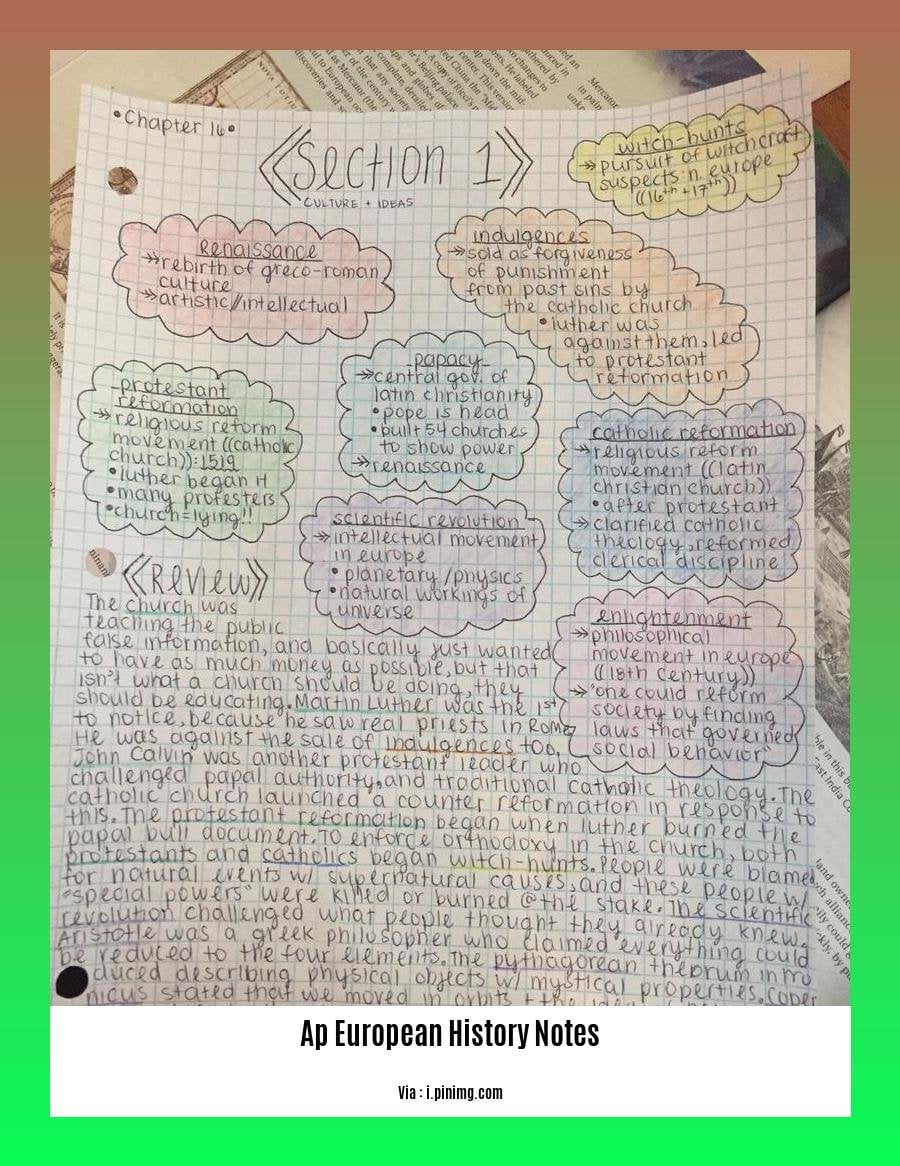 •Chapter 16•
《Section 1》
CULTURE + IDEAS
witch-hunts
→ pursuit of witchcraft
suspects in europe
((16th + 17th))
Renaissance
→ rebirth of greco-roman
culture
→ artistic//intellectual
indulgences
→ sold as forgiveness
of punishment
from past sins by
the catholic church
• luther was
against them, led
to protestant
reformation
protestant
reformation
→ religious reform
movement ((catholic
church)): 1519
• luther began it
• many protesters
• church=lying!!
papacy
→ central gov. of
latin christianity
• pope is head
• built 54 churches
to show power
→ renaissance
catholic reformation
→ religious reform
movement ((latin
christian church))
• after protestant
→ clarified catholic
theology, reformed
clerical discipline
scientific revolution
→ intellectual movement
in europe
• planetary/physics
• natural workings of
universe
enlightenment
→ philosophical
movement in europe
((18th century))
→ "one could reform
society by finding
laws that governed
social behavior"
《Review》
The church was
teaching the public
false information, and basically just wanted
to have as much money as possible, but that
isn't what a church should be doing, they
should be educating. Martin Luther was the 1st
to notice, because he saw real priests in Rome
He was against the sale of indulgences too,
John Calvin was another protestant leader who
challenged papal authority, and traditional catholic theology. The
catholic church launched a counter reformation in response to
this. The protestant reformation began when luther burned the
papal bull document. To enforce orthodoxy in the church, both
protestants and catholics began witch-hunts. People were blamed
for natural events w/ supernatural causes, and these people w/
"special powers" were killed or burned @ the stake. The scientific
revolution challenged what people thought they already knew.
Aristotle was a greek philosopher who claimed everything could
be reduced to the four elements. The pythagorean theorum intro
duced describing physical objects w/ mystical properties. Coper
nicus stated that we moved in orbits + the
Ap European History Notes
Via : i.pinimg.com